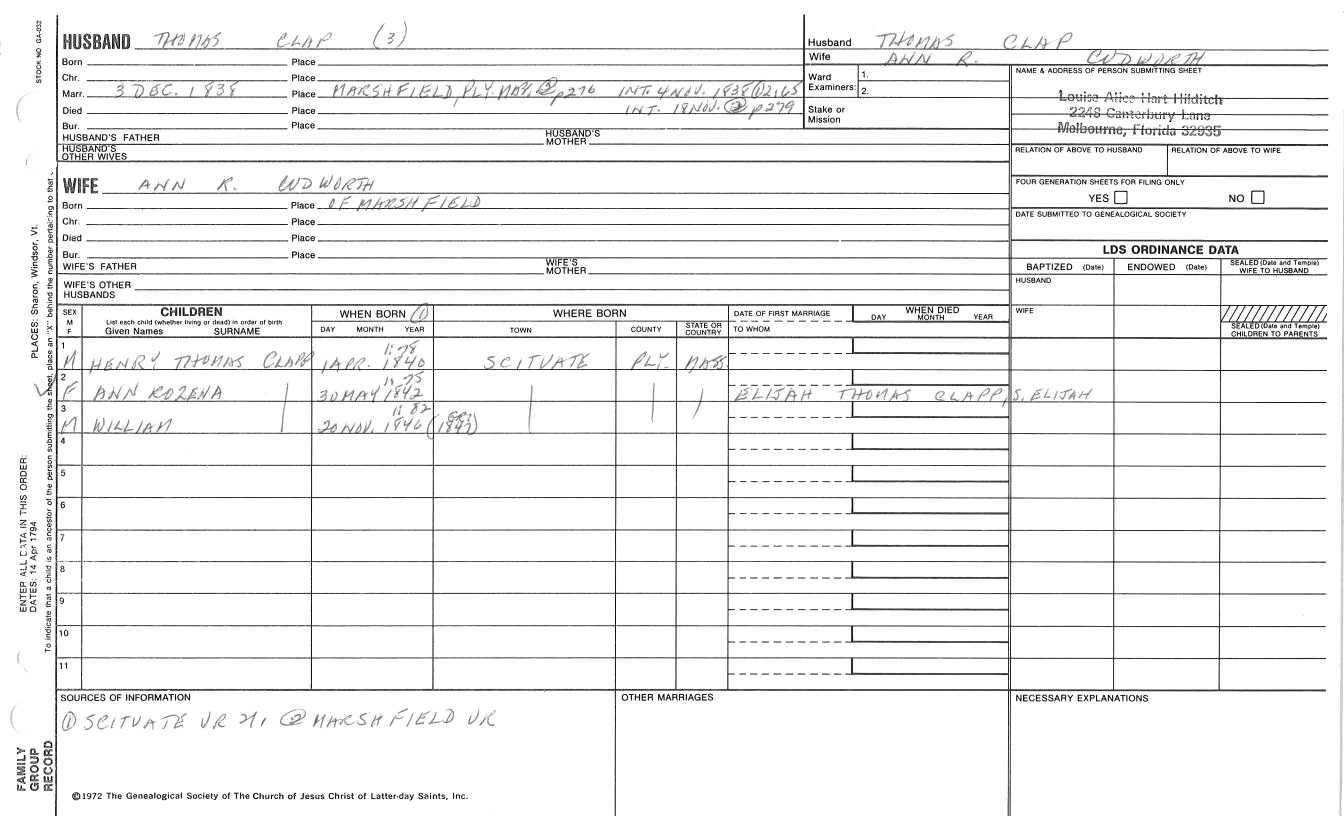 STOCK NO GA-032
HUSBAND THOMAS CLAP (3)
Born Place
Chr. Place
Marr. 3 DEC. 1838 Place MARSHFIELD, PLY. MA, ② p276 INT. 4 NOV. 1838 ① 2:65
Died Place INT. 18 NOV. ② p279
Bur. Place
HUSBAND'S FATHER HUSBAND'S MOTHER
HUSBAND'S OTHER WIVES
Husband THOMAS CLAP
Wife ANN R. CUDWORTH
Ward Examiners: 1.
2.
Stake or Mission
NAME & ADDRESS OF PERSON SUBMITTING SHEET
Louise Alice Hart Hilditch
2248 Canterbury Lane
Melbourne, Florida 32935
RELATION OF ABOVE TO HUSBAND RELATION OF ABOVE TO WIFE
FOUR GENERATION SHEETS FOR FILING ONLY
YES NO
DATE SUBMITTED TO GENEALOGICAL SOCIETY
WIFE ANN R. CUDWORTH
Born Place OF MARSHFIELD
Chr. Place
Died Place
Bur. Place
WIFE'S FATHER WIFE'S MOTHER
WIFE'S OTHER HUSBANDS
LDS ORDINANCE DATA
BAPTIZED (Date) ENDOWED (Date) SEALED (Date and Temple) WIFE TO HUSBAND
HUSBAND
WIFE
SEALED (Date and Temple) CHILDREN TO PARENTS
SEX M F CHILDREN WHEN BORN ① WHERE BORN DATE OF FIRST MARRIAGE WHEN DIED
List each child (whether living or dead) in order of birth
Given Names SURNAME DAY MONTH YEAR TOWN COUNTY STATE OR COUNTRY TO WHOM DAY MONTH YEAR
1 1:78
M HENRY THOMAS CLAPP 1 APR. 1840 SCITUATE PLY. MASS
2 1:75
F ANN ROZENA 30 MAY 1842 ELIJAH THOMAS CLAPP, S. ELIJAH
3 1:82
M WILLIAM 20 NOV. 1846 (1847)
4
5
6
7
8
9
10
11
SOURCES OF INFORMATION OTHER MARRIAGES NECESSARY EXPLANATIONS
① SCITUATE VR ② MARSHFIELD VR
©1972 The Genealogical Society of The Church of Jesus Christ of Latter-day Saints, Inc.
PLACES: Sharon, Windsor, Vt.
To indicate that a child is an ancestor of the person submitting the sheet, place an "X" behind the number pertaining to that
ENTER ALL DATA IN THIS ORDER:
DATES: 14 Apr 1794
FAMILY GROUP RECORD